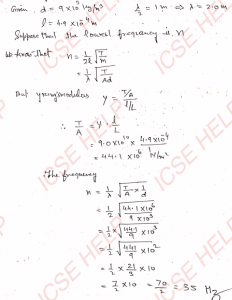 Given d = 9 × 10³ Kg/m³ λ/2 = 1m ⇒ λ = 2.0m
l = 4.9 × 10⁻⁴ m
Suppose that the lowest frequency is n
We know that n = 1/2l √T/m
= 1/λ √T/Ad
But young modulus y = T/A / l/L
∴ T/A = Y · l/L
= 9.0×10¹⁰ × 4.9×10⁻⁴ / 1
= 44.1 × 10⁶ N/m²
The frequency
n = 1/λ √T/A × 1/d
= 1/2 √44.1×10⁶ / 9×10³
= 1/2 × √44.1/9 × 10³
= 1/2 √441/9 × 10²
= 1/2 × 21/3 × 10
= 7/2 × 10 = 70/2 = 35 Hz
ICSE HELP
ICSE HELP
ICSE HELP